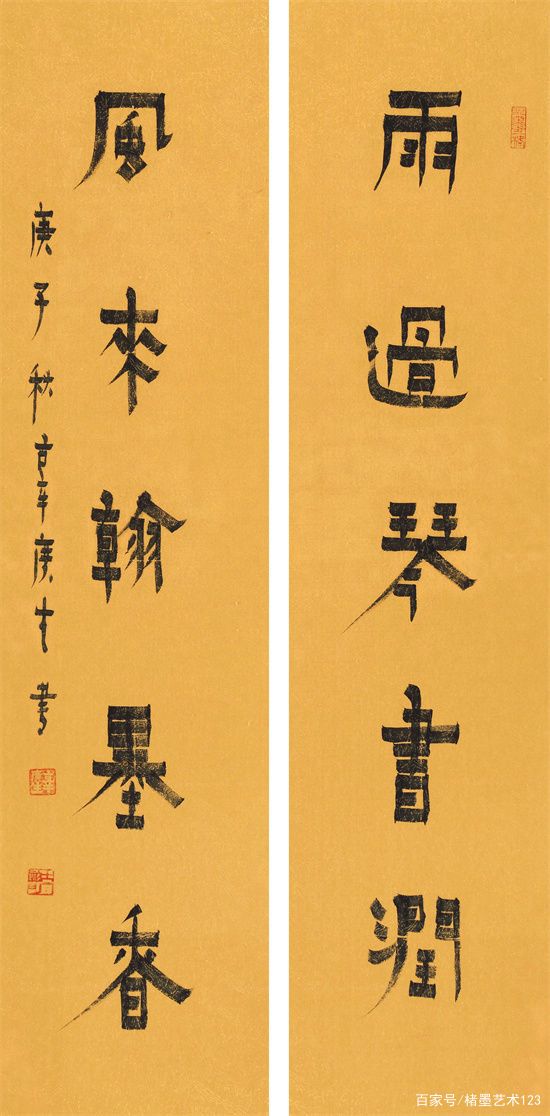 雨過琴書潤
風來翰墨香
庚子秋辜庚生書
百家号/楮墨艺术123